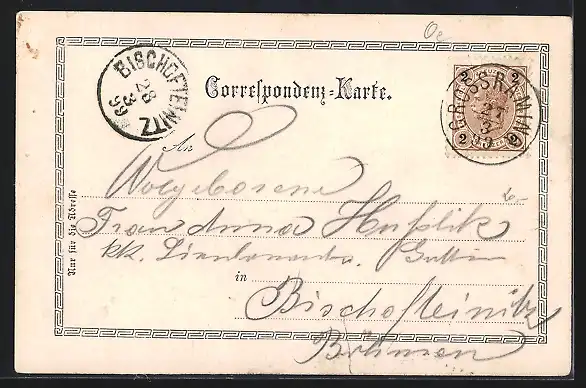 Oe
BISCHOFTEINITZ
28
3
99
Correspondenz-Karte.
2 2
GROSSRAMING
27
3
99
2 2
An
Wolgeborene
Frau Anna
kk.
in
Bischofteinitz
Böhmen
Nur für die Adresse